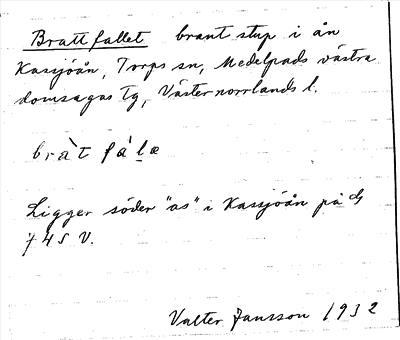 Brattfallet brant stup i ån
Kassjöån, Torps sn, Medelpads västra
domsagas tg, Västernorrlands l.
bràt fàlæ
Ligger söder "as" i Kassjöån på ds
74S V.
Valter Jansson 1932